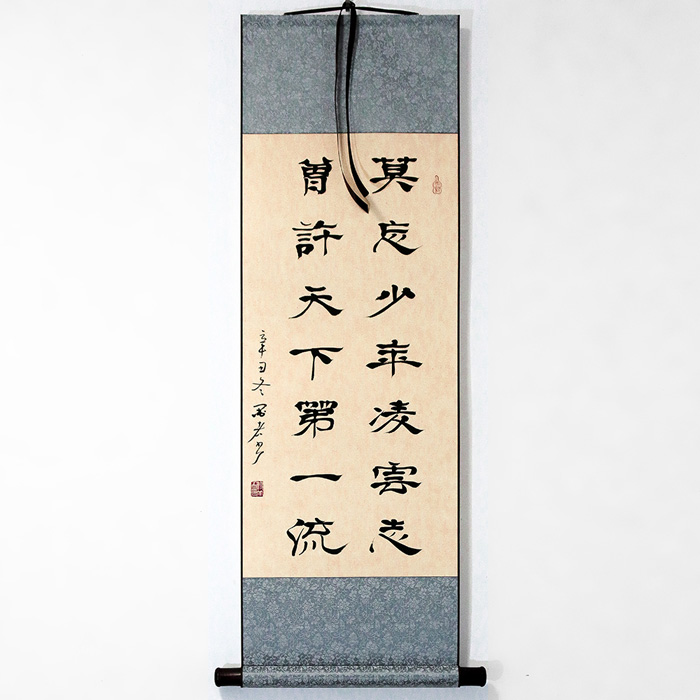 莫忘少年凌雲志
曽許天下第一流
辛丑冬